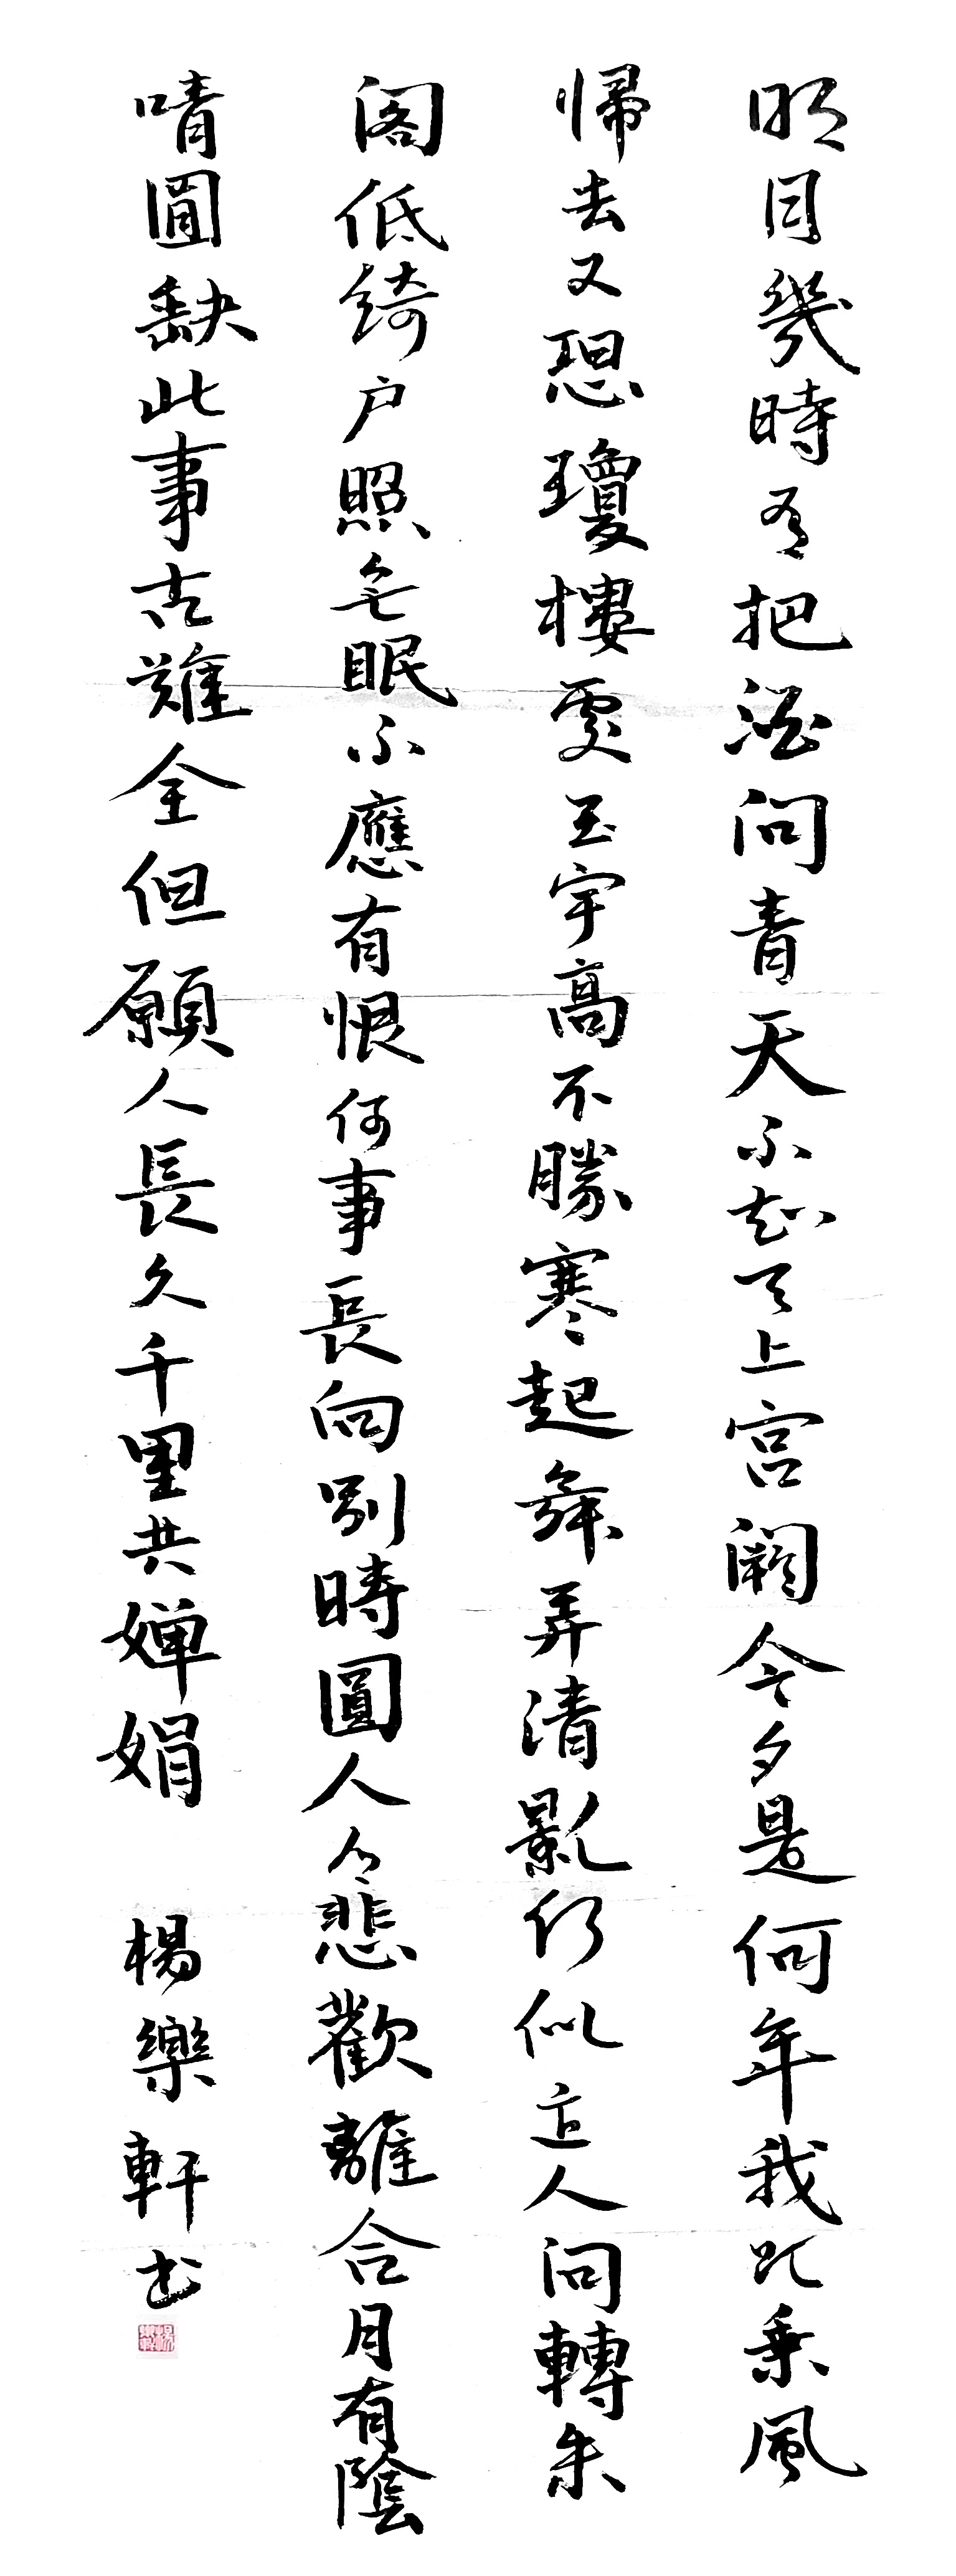 明月幾時有把酒問青天不知天上宮闕今夕是何年我欲乘風
歸去又恐瓊樓處玉宇高不勝寒起舞弄清影何似在人間轉朱
閣低綺户照無眠不應有恨何事長向別時圓人有悲歡離合月有陰
晴圓缺此事古難全但願人長久千里共嬋娟 楊樂軒书